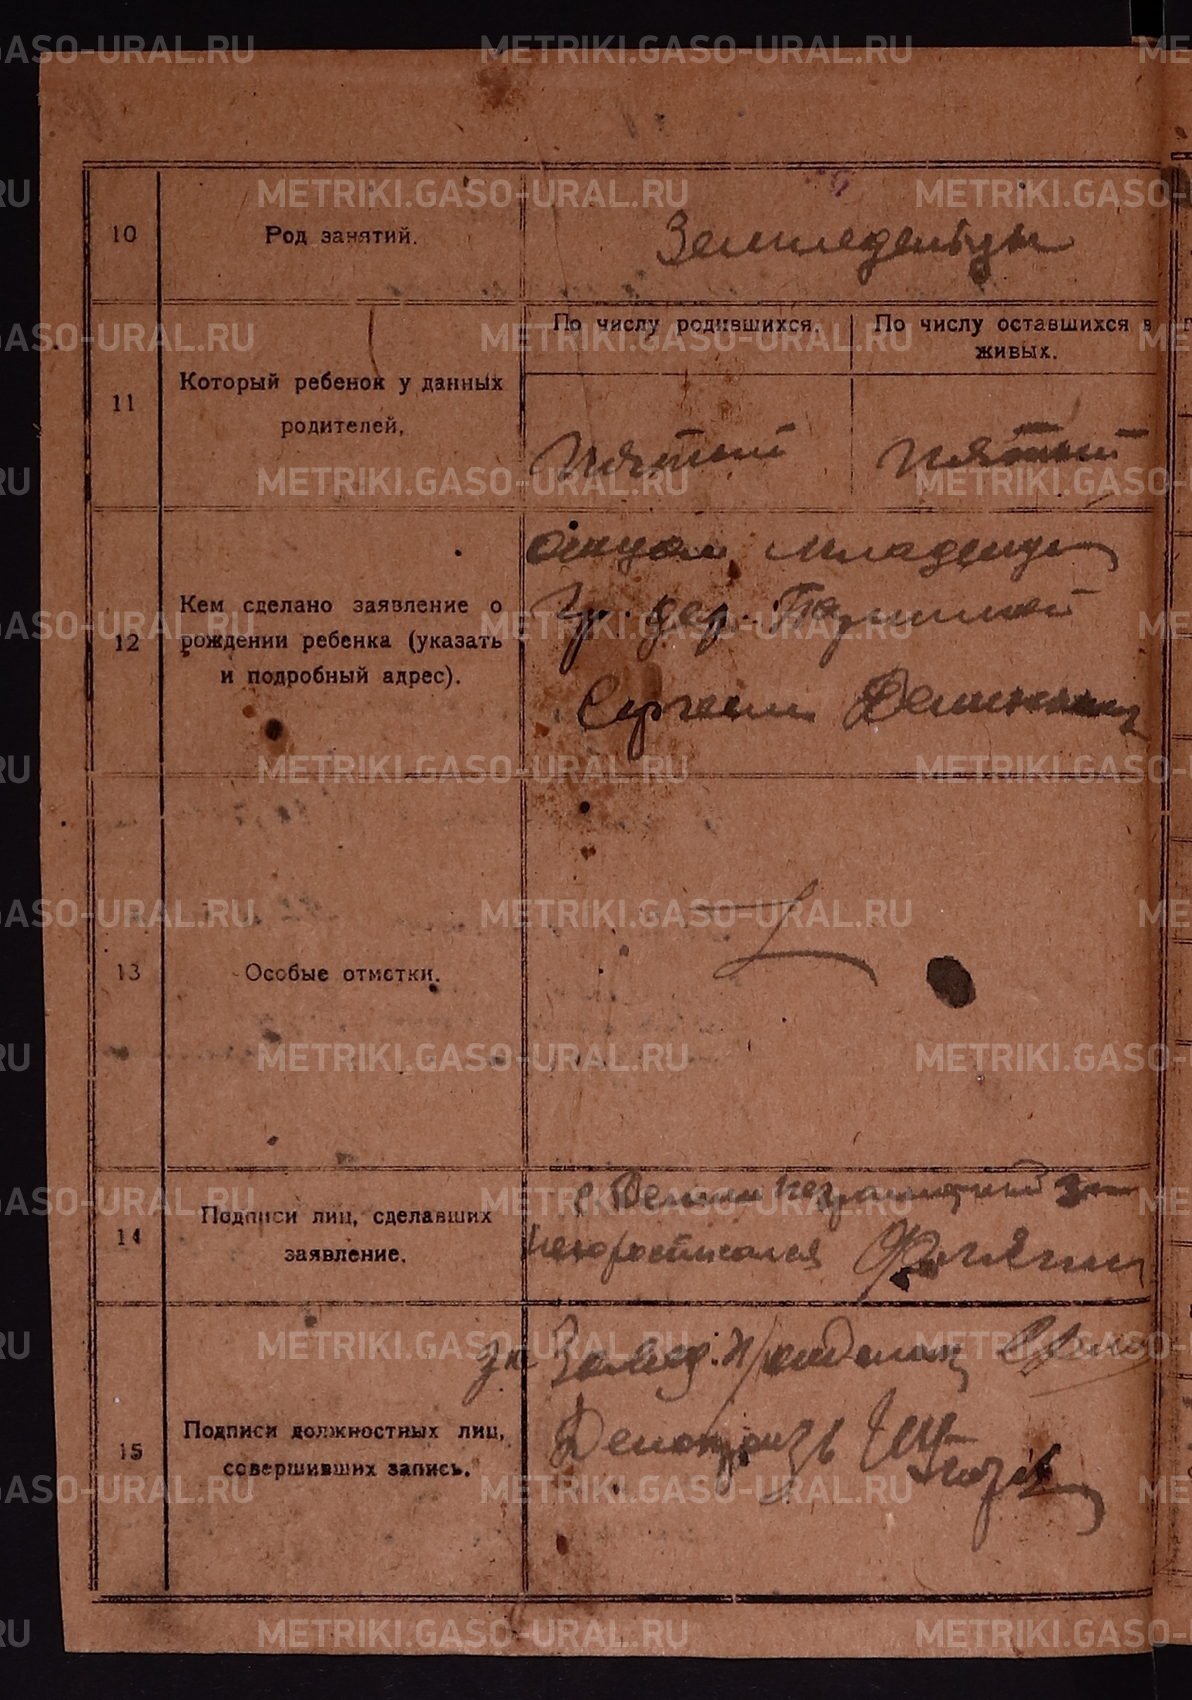 10
Род занятий.
Земледельцы
11
Который ребенок у данных
родителей.
По числу родившихся.
По числу оставшихся в
живых.
Пятый
Пятый
12
Кем сделано заявление о
рождении ребенка (указать
и подробный адрес).
отцом младенца
Гр. дер.
Сергеем
13
Особые отметки.
14
Подписи лиц, сделавших
заявление.
неграмотный за
15
Подписи должностных лиц,
совершивших запись.
за Завед.
Делопроизв
METRIKI.GASO-URAL.RU